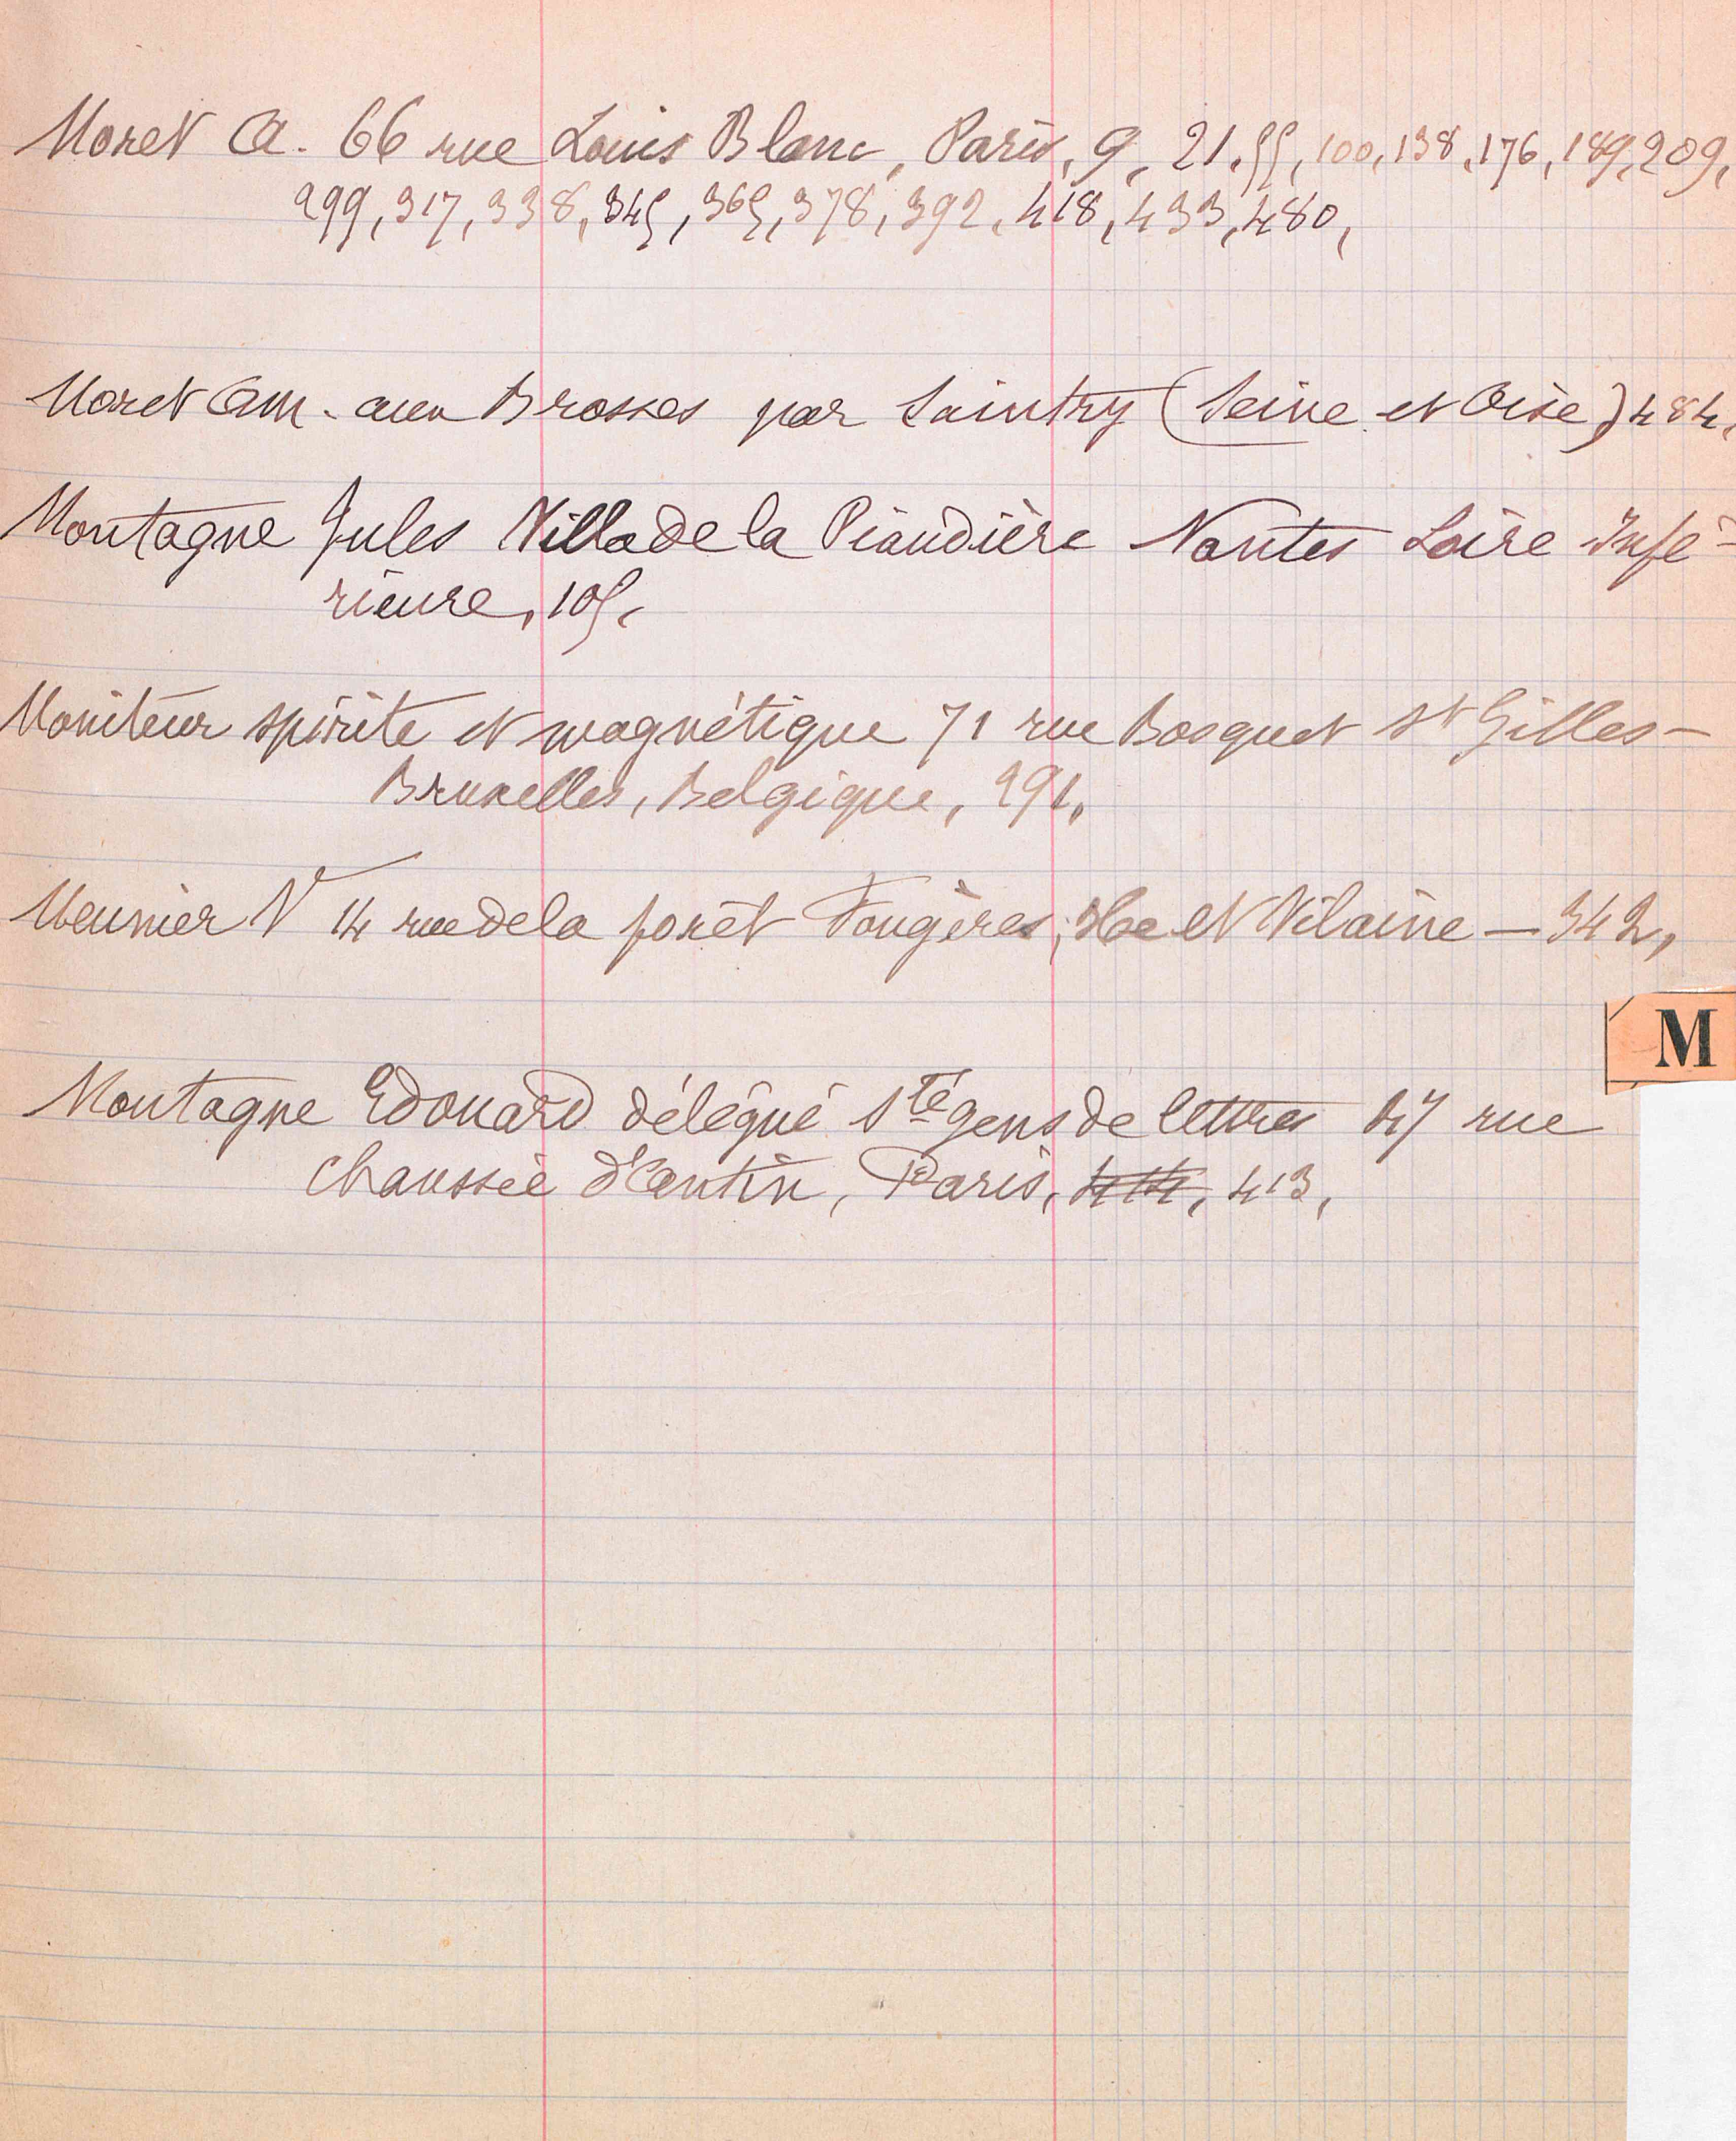 Moret A. 66 rue Louis Blanc, Paris, 9, 21, 55, 100, 138, 176, 189, 209,
299, 317, 338, 345, 365, 378, 392, 418, 433, 480,
Moret Am. aux Brosses par Saintry (Seine et Oise) 484,
Montagne Jules Villa de la Piaudière Nantes Loire Infé-
rieure, 105,
Moniteur spirite et magnétique 71 rue Bosquet St Gilles-
Bruxelles, Belgique, 291,
Meunier V 14 rue de la forêt Fougères, Ille et Vilaine — 342,
M
Montagne Edouard délégué Sté gens de lettres 47 rue
Chaussée d'Antin, Paris, 413,